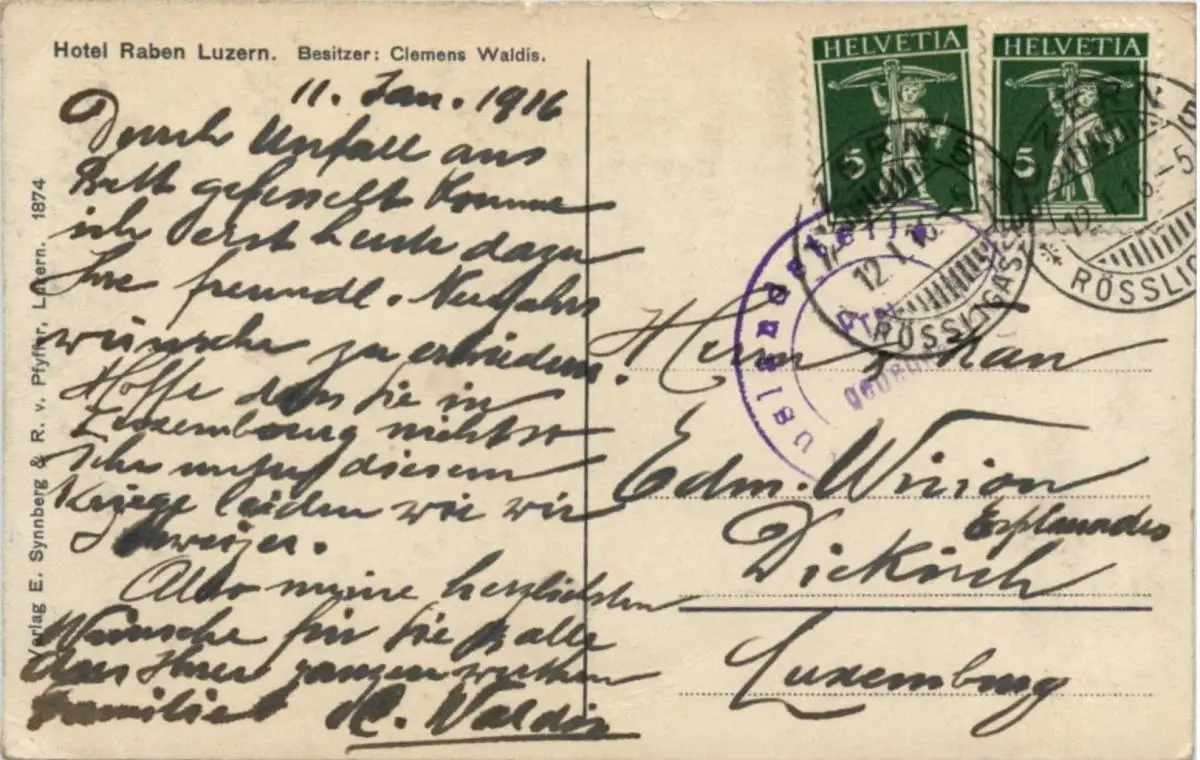 Hotel Raben Luzern. Besitzer: Clemens Waldis.
11. Jan. 1916
Durch Unfall ans
Bett gefesselt komme
ich erst heute dazu
Ihre freundl. Neujahrs
wünsche zu erwiedern.
Hoffe dass Sie in
Luxembourg nicht so
sehr unter diesem
Kriege leiden wie wir
Schweizer.
Also meine herzlichsten
Wünsche für Sie & alle
Ihrer ganzen werthen
Familie
C. Waldis
Verlag E. Synnberg & R. v. Pfyffer, Luzern. 1874
HELVETIA
5
HELVETIA
5
LUZERN 5
12.I.16
RÖSSLIGASSE
LUZERN 5
12.I.16.-5
RÖSSLIG
Auslandstelle
Ottr
geprüft
Herrn
Edm. Wirion
Esplanades
Diekirch
Luxemburg